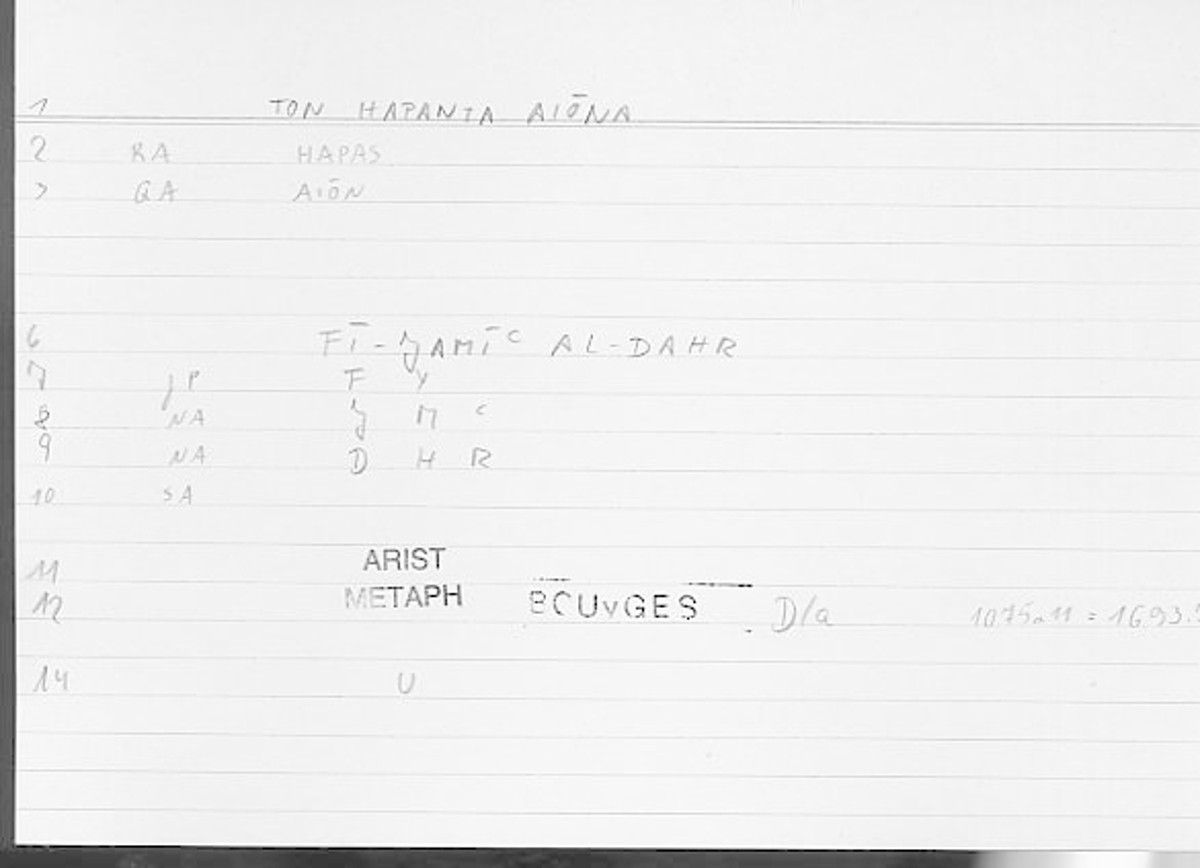 1 TON HAPANTA AIŌNA
2 RA HAPAS
3 QA AIŌN
6 FĪ-JAMĪC AL-DAHR
7 jP F Y
8 NA J M C
9 NA D H R
10 SA
11 ARIST
12 METAPH BOUYGES D/a 1075a11 = 1693.
14 U